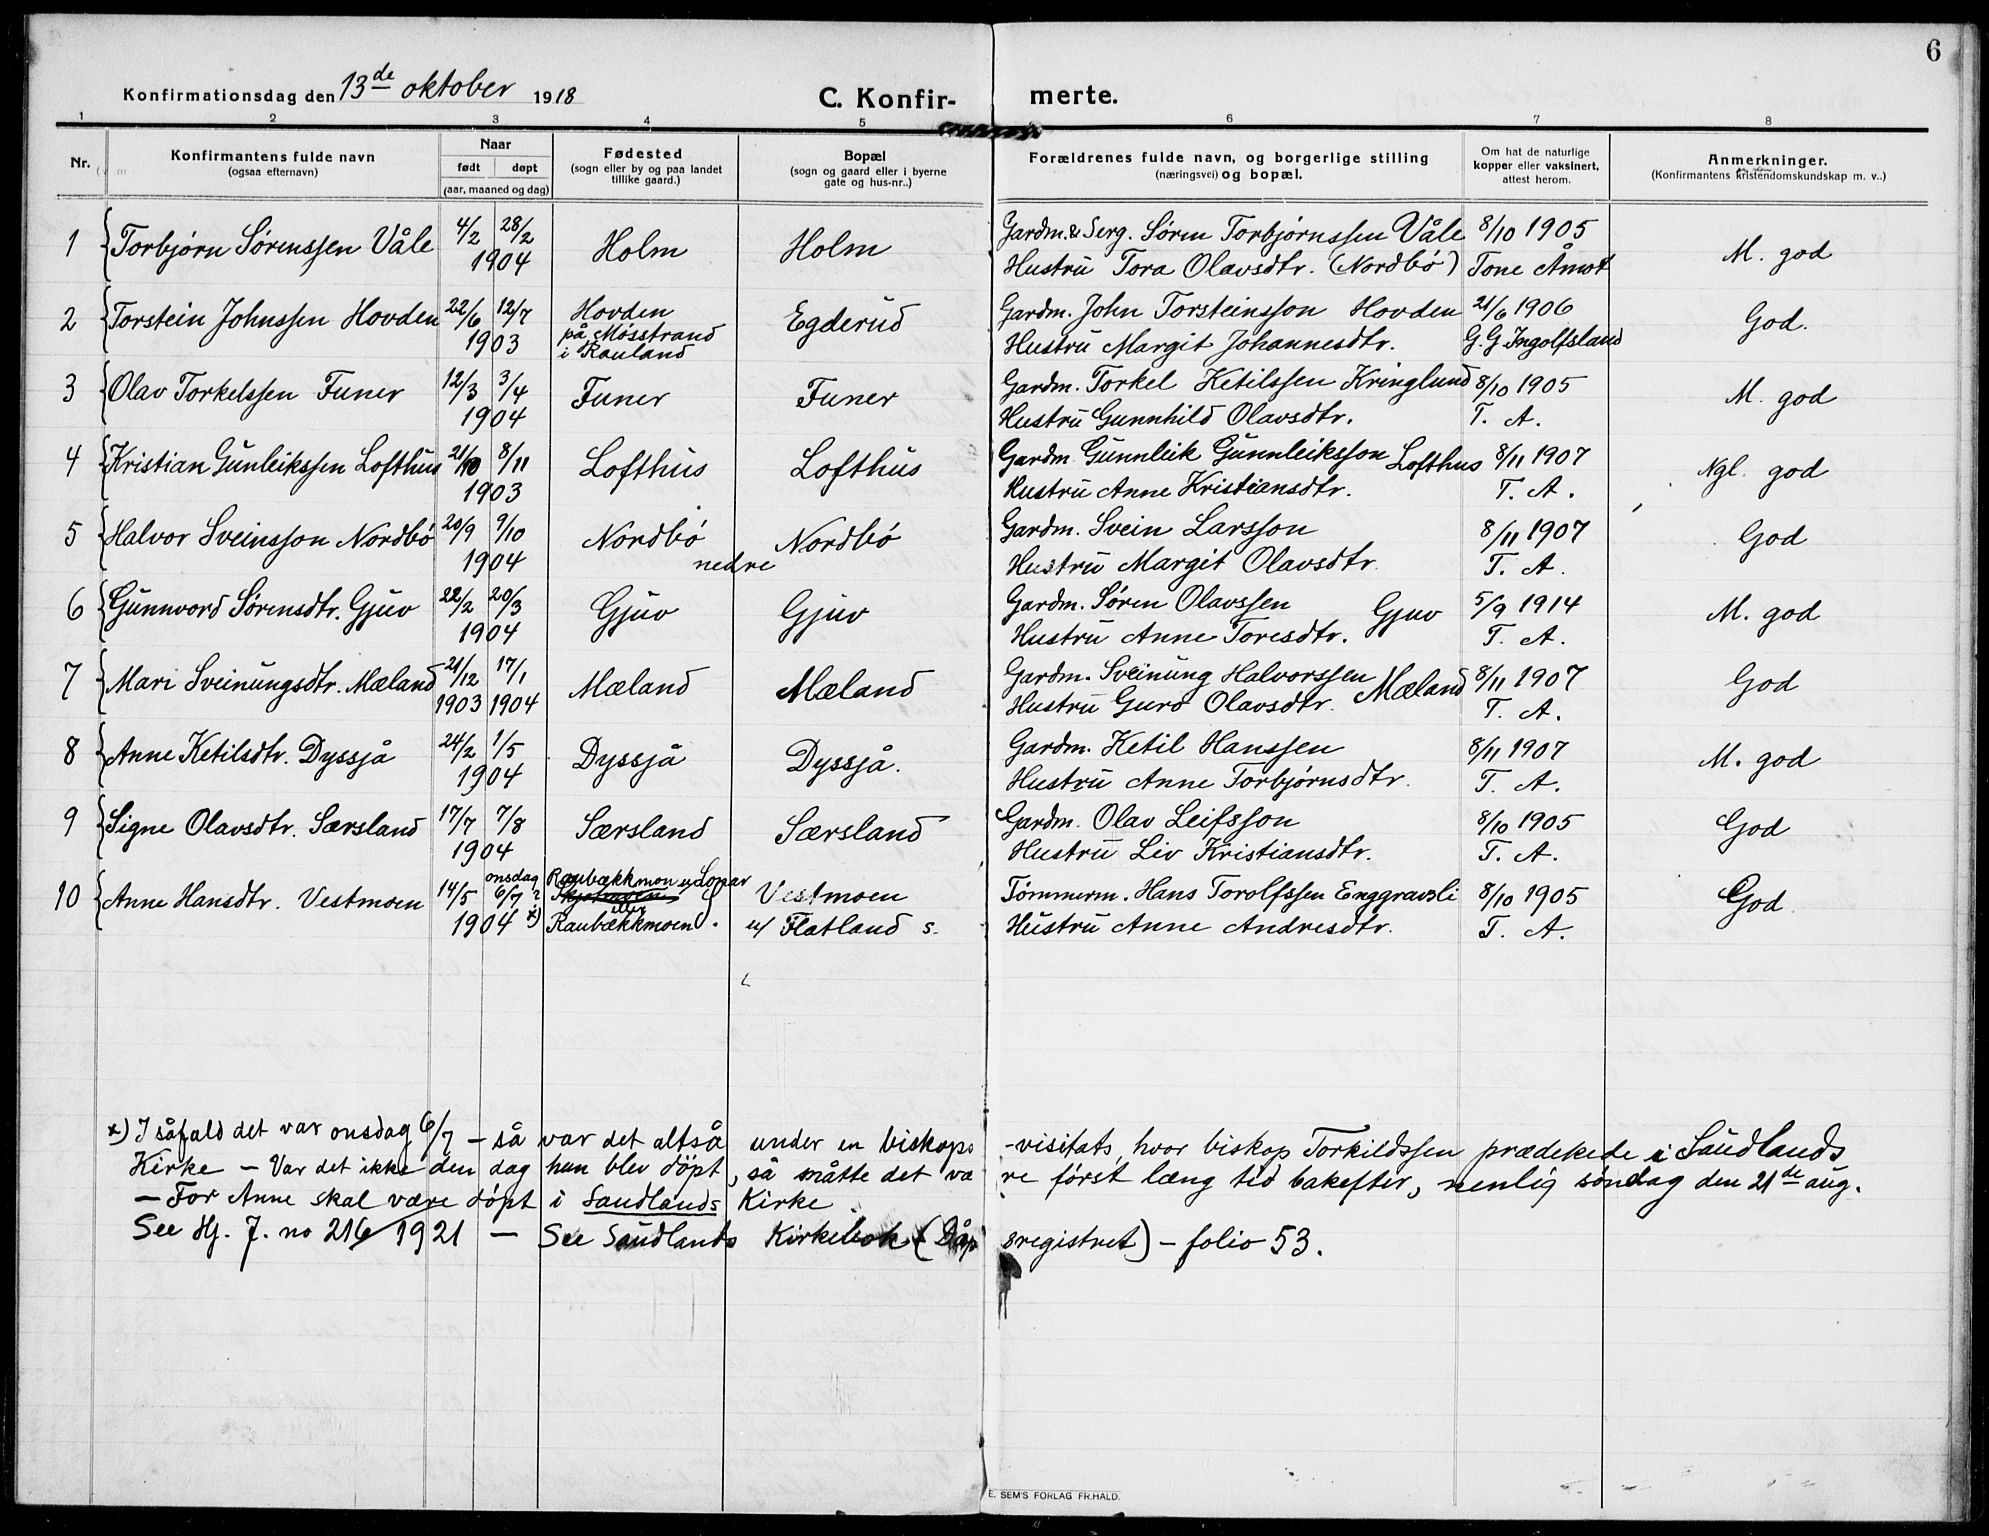 6
Konfirmationsdag den 13de oktober 1918
C. Konfir- merte.
1 2 3 4 5 6 7 8
Nr.
Konfirmantens fulde navn
(ogsaa efternavn)
Naar
født døpt
(aar, maaned og dag)
Fødested
(sogn eller by og paa landet
tillike gaard.)
Bopæl
(sogn og gaard eller i byerne
gate og hus-nr..)
Forældrenes fulde navn, og borgerlige stilling
(næringsvei) og bopæl.
Om hat de naturlige
kopper eller vaksinert,
attest herom.
Anmerkninger.
(Konfirmantens kristendomskundskap m. v..)
1 Torbjørn Sørenssen Våle 4/2 28/2 Holm Holm Gardm. & Serg. Søren Torbjørnssen Våle 8/10 1905 M. god
1904 Hustru Tora Olavsdtr. (Nordbø) Tone Åmot
2 Torstein Johnssen Hovden 22/6 12/7 Hovden Egderud Gardm. John Torsteinsson Hovden 21/6 1906 God.
på Møsstrand
1903 i Rauland Hustru Margit Johannesdtr. G. G. Ingolfsland
3 Olav Torkelssen Funer 12/3 3/4 Funer Funer Gardm. Torkel Ketilssen Kringlund 8/10 1905 M. god
1904 Hustru Gunnhild Olavsdtr. T. A.
4 Kristian Gunleikssen Lofthus 21/10 8/11 Lofthus Lofthus Gardm. Gunnleik Gunnleiksson Lofthus 8/11 1907 Ngl. god
1903 Hustru Anne Kristiansdtr. T. A.
5 Halvor Sveinsson Nordbø 20/9 9/10 Nordbø Nordbø Gardm. Svein Larsson 8/11 1907 God
1904 nedre Hustru Margit Olavsdtr. T. A.
6 Gunnvord Sørensdtr. Gjuv 22/2 20/3 Gjuv Gjuv Gardm. Søren Olavssen Gjuv 5/9 1914 M. god
1904 Hustru Anne Toresdtr. T. A.
7 Mari Sveinungsdtr. Mæland 21/12 17/1 Mæland Mæland Gardm. Sveinung Halvorssen Mæland 8/11 1907 God
1903 1904 Hustru Guro Olavsdtr. T. A.
8 Anne Ketilsdtr. Dyssjå 24/2 1/5 Dyssjå Dyssjå. Gardm. Ketil Hanssen 8/11 1907 M. god
1904 Hustru Anne Torbjørnsdtr. T. A.
9 Signe Olavsdtr. Særsland 17/7 7/8 Særsland Særsland Gardm. Olav Leifsson 8/10 1905 God
1904 Hustru Liv Kristiansdtr. T. A.
onsdag Raubækkmoen u/
10 Anne Hansdtr. Vestmoen 14/5 6/7 ? Vestmoen Tømmerm. Hans Torolfssen Enggravsli 8/10 1905 God
eller
1904 x) Raubækkmoen. u/ Flatland s. Hustru Anne Andresdtr. T. A.
x) I såfald det var onsdag 6/7 – så var det altså under en biskops -visitats, hvor biskop Torkildssen prædekede i Saudlands
Kirke – Var det ikke den dag hun blev døpt, så måtte det va re først læng tid bakefter, nenlig søndag den 21de aug.
– For Anne skal være døpt i Saudlands Kirke
See Hj. J. no 216/1921 – See Saudlands Kirkebok (Dåp sregistret) – folio 53.
E. SEM'S FORLAG FR.HALD.